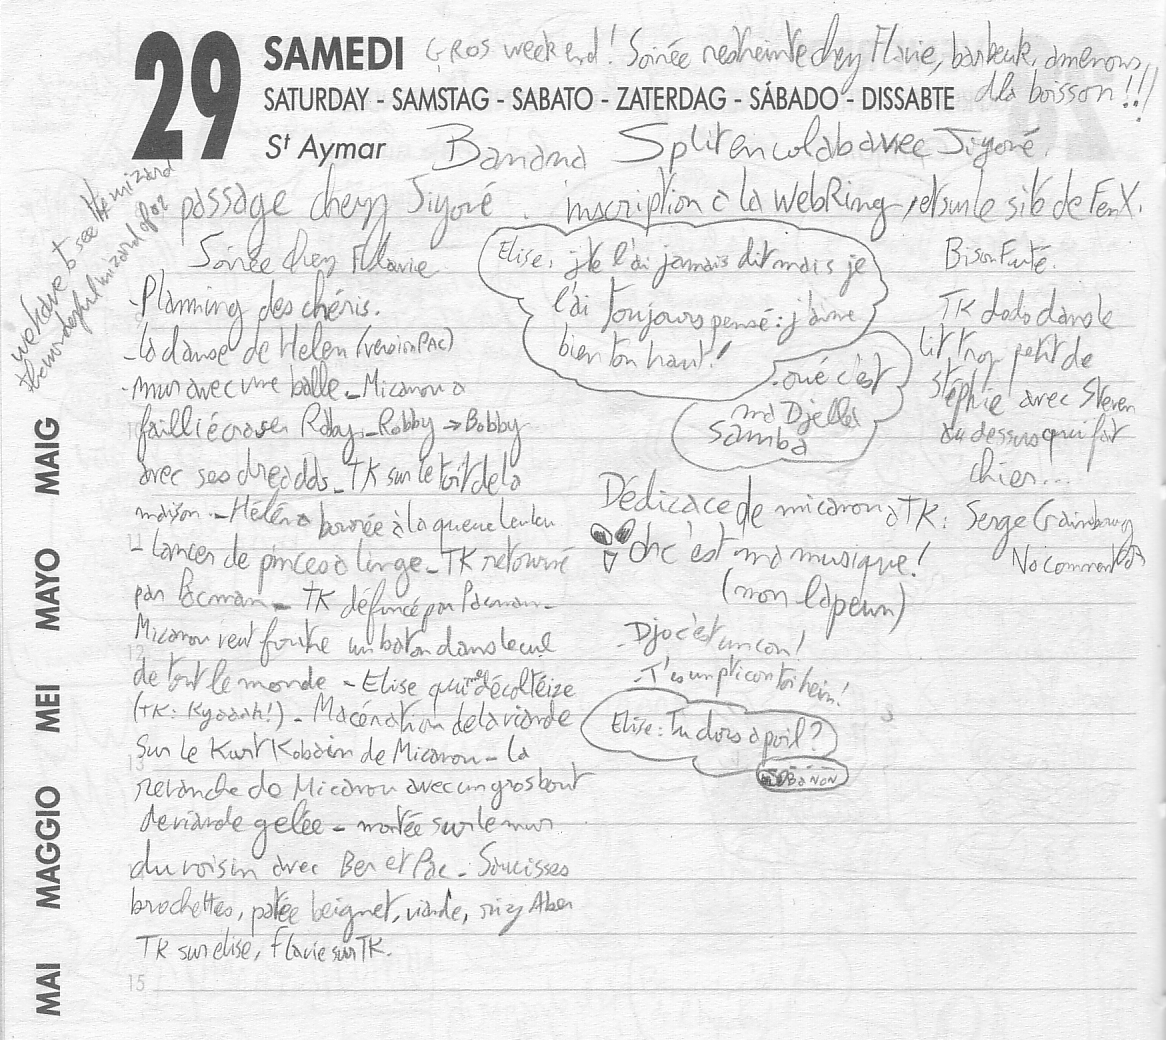 29 SAMEDI GROS week end! Soirée chez Flavie, barbeuk, amenons
SATURDAY - SAMSTAG - SABATO - ZATERDAG - SÁBADO - DISSABTE dla boisson!!!
St Aymar Banana Split en colab avec Jiyoré.
passage chez Jiyoré. inscription à la WebRing, et sur le site de FenX.
we have to see the wizard
the wizard of oz
Soirée chez Flavie
-Planning des chéris.
-la danse de Helen (version PAC)
-mur avec une balle - Micanou a
failli écraser Roby - Robby → Bobby
avec ses dreadds - TK sur le toit de la
maison - Héléna bourée à la queue leuleu
- Lancer de pinces à linge - TK retourné
par Pacman - TK défoncé par Pacman -
Micanou veut foutre un baton dans le cul
de tout le monde - Elise qui me décoltéize
(TK: Kyaaah!) - Macération de la viande
sur le Kurt Kobain de Micanou - la
revanche de Micanou avec un gros bout
de viande gelée - montée sur le mur
du voisin avec Ben et Pac - Soucisses
brochettes, patée beignet, viande, riz
TK sur elise, Flavie sur TK.
Elise, j'te l'ai jamais dit mais je
l'ai toujours pensé: j'aime
bien ton haut!
.oué c'est
ma Djella
Samba
Bison Futé.
TK dodo dans le
lit trop petit de
stéphie avec Steven
au dessus qui fait
chier...
Dédicace de micanou a TK: Serge Gainsbourg
Oh c'est ma musique! No comment
(mon lapeun)
-Djo c'est un con!
-T'es un pti con toi hein!
Elise: Tu dors a poil?
Ba non
10
11
12
13
15
MAI MAGGIO MEI MAYO MAIG